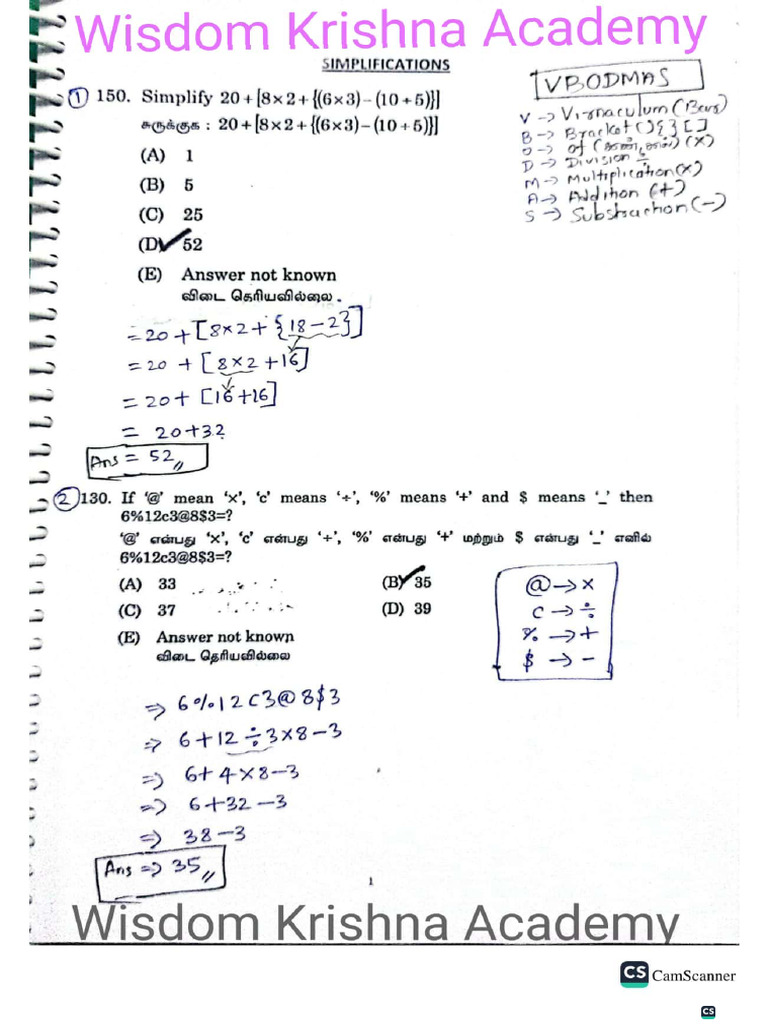 Wisdom Krishna Academy
SIMPLIFICATIONS
VBODMAS
V -> Virnaculum (Bar)
B -> Bracket () {} []
O -> of (கண், கல்) (x)
D -> Division ÷
M -> Multiplication (x)
A -> Addition (+)
S -> Substraction (-)
① 150. Simplify 20+[8×2+{(6×3)–(10÷5)}]
சுருக்குக : 20+[8×2+{(6×3)–(10÷5)}]
(A) 1
(B) 5
(C) 25
(D) 52
(E) Answer not known
விடை தெரியவில்லை.
= 20 + [8×2 + {18-2}]
= 20 + [8×2 +16]
= 20+ [16+16]
= 20+32
Ans = 52
② 130. If '@' mean 'x', 'c' means '÷', '%' means '+' and $ means '_' then
6%12c3@8$3=?
'@' என்பது 'x', 'c' என்பது '÷', '%' என்பது '+' மற்றும் $ என்பது '_' எனில்
6%12c3@8$3=?
(A) 33 (B) 35
(C) 37 (D) 39
(E) Answer not known
விடை தெரியவில்லை
@ -> x
c -> ÷
% -> +
$ -> -
=> 6%12C3@8$3
=> 6+12÷3×8-3
=> 6+4×8-3
=> 6+32-3
=> 38-3
Ans => 35
1
Wisdom Krishna Academy
CS CamScanner
CS